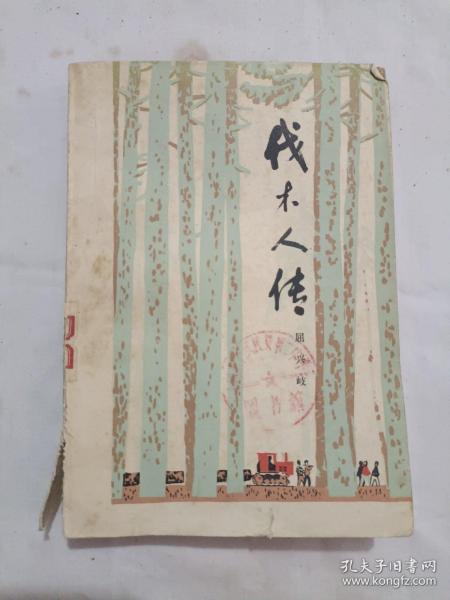 伐木人传
屈兴岐
孔夫子旧书网
www.kongfz.com